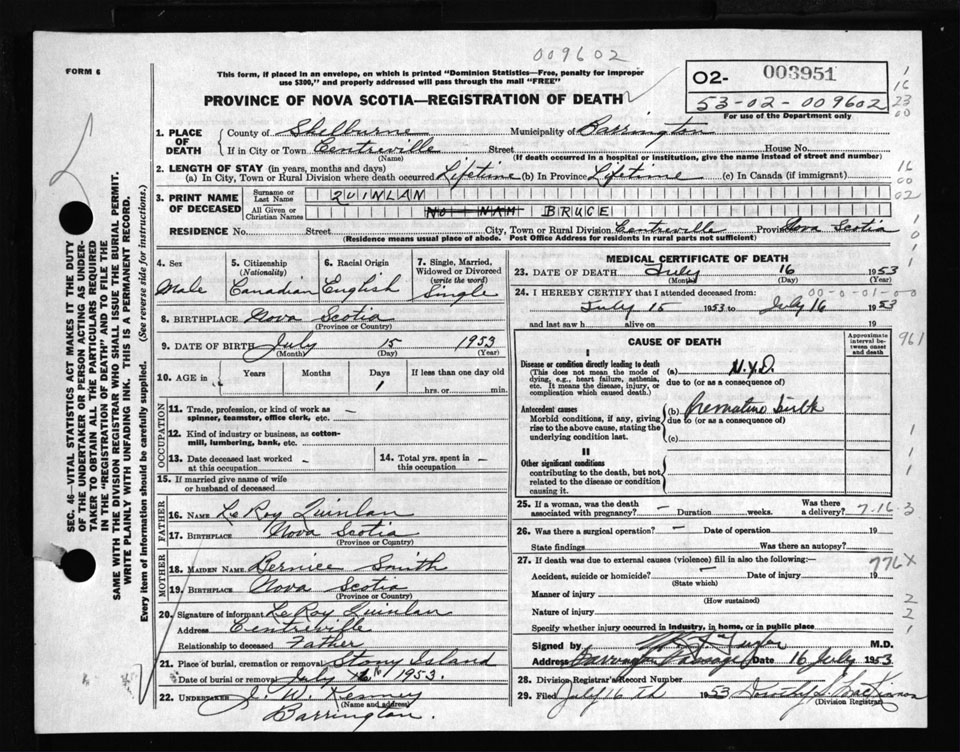 009602
FORM 6
This form, if placed in an envelope, on which is printed "Dominion Statistics—Free, penalty for improper
use $300," and properly addressed will pass through the mail "FREE"
PROVINCE OF NOVA SCOTIA—REGISTRATION OF DEATH
O2- 003951
53-02-009602
For use of the Department only
1 16 23 00
1. PLACE OF DEATH { County of Shelburne Municipality of Barrington
If in City or Town Centreville Street House No.
(Name) (If death occurred in a hospital or institution, give the name instead of street and number)
2. LENGTH OF STAY (in years, months and days)
(a) In City, Town or Rural Division where death occurred Lifetime (b) In Province Lifetime (c) In Canada (if immigrant)
16 00 02
3. PRINT NAME OF DECEASED { Surname or Last Name QUINLAN
All Given or Christian Names NO NAM BRUCE
RESIDENCE No. Street City, Town or Rural Division Centreville Province Nova Scotia
(Residence means usual place of abode. Post Office Address for residents in rural parts not sufficient)
4. Sex Male
5. Citizenship (Nationality) Canadian
6. Racial Origin English
7. Single, Married, Widowed or Divorced (write the word) Single
8. BIRTHPLACE Nova Scotia
(Province or Country)
9. DATE OF BIRTH July 15 1953
(Month) (Day) (Year)
10. AGE in { Years Months Days If less than one day old
1 hrs. or min.
OCCUPATION
11. Trade, profession, or kind of work as
spinner, teamster, office clerk, etc. —
12. Kind of industry or business, as cotton-
mill, lumbering, bank, etc. —
13. Date deceased last worked
at this occupation —
14. Total yrs. spent in
this occupation —
15. If married give name of wife
or husband of deceased
FATHER
16. NAME LeRoy Quinlan
17. BIRTHPLACE Nova Scotia
(Province or Country)
MOTHER
18. MAIDEN NAME Bernice Smith
19. BIRTHPLACE Nova Scotia
(Province or Country)
20. Signature of informant LeRoy Quinlan
Address Centreville
Relationship to deceased Father
21. Place of burial, cremation or removal Stony Island
Date of burial or removal July 16 1953.
22. UNDERTAKER J. W. Kenney
(Name and address)
Barrington.
MEDICAL CERTIFICATE OF DEATH
23. DATE OF DEATH July 16 1953
(Month) (Day) (Year)
00-0-01-00
24. I HEREBY CERTIFY that I attended deceased from:
July 15 1953 to July 16 1953
and last saw h alive on 19
CAUSE OF DEATH
Approximate interval between onset and death
961
I
Disease or condition directly leading to death
(This does not mean the mode of
dying, e.g., heart failure, asthenia,
etc. It means the disease, injury, or
complication which caused death.)
(a) N.Y.D.
due to (or as a consequence of)
Antecedent causes
Morbid conditions, if any, giving
rise to the above cause, stating the
underlying condition last.
(b) Premature birth
due to (or as a consequence of)
(c)
II
Other significant conditions
contributing to the death, but not
related to the disease or condition
causing it.
25. If a woman, was the death
associated with pregnancy? — Duration weeks. Was there a delivery? 7.16.3
26. Was there a surgical operation? — Date of operation 19
State findings Was there an autopsy?
27. If death was due to external causes (violence) fill in also the following:—
776X
Accident, suicide or homicide? — Date of injury 19
(State which)
Manner of injury
(How sustained)
Nature of injury
Specify whether injury occurred in industry, in home, or in public place
2 2 1
Signed by M.D.
Address Barrington Passage Date 16 July 1953
28. Division Registrar's Record Number
29. Filed July 16th 1953 Dorothy S. MacKinnon
(Division Registrar)
SEC. 46—VITAL STATISTICS ACT MAKES IT THE DUTY
OF THE UNDERTAKER OR PERSON ACTING AS UNDER-
TAKER TO OBTAIN ALL THE PARTICULARS REQUIRED
IN THE "REGISTRATION OF DEATH" AND TO FILE THE
SAME WITH THE DIVISION REGISTRAR WHO SHALL ISSUE THE BURIAL PERMIT.
WRITE PLAINLY WITH UNFADING INK. THIS IS A PERMANENT RECORD.
Every item of Information should be carefully supplied. (See reverse side for instructions.)